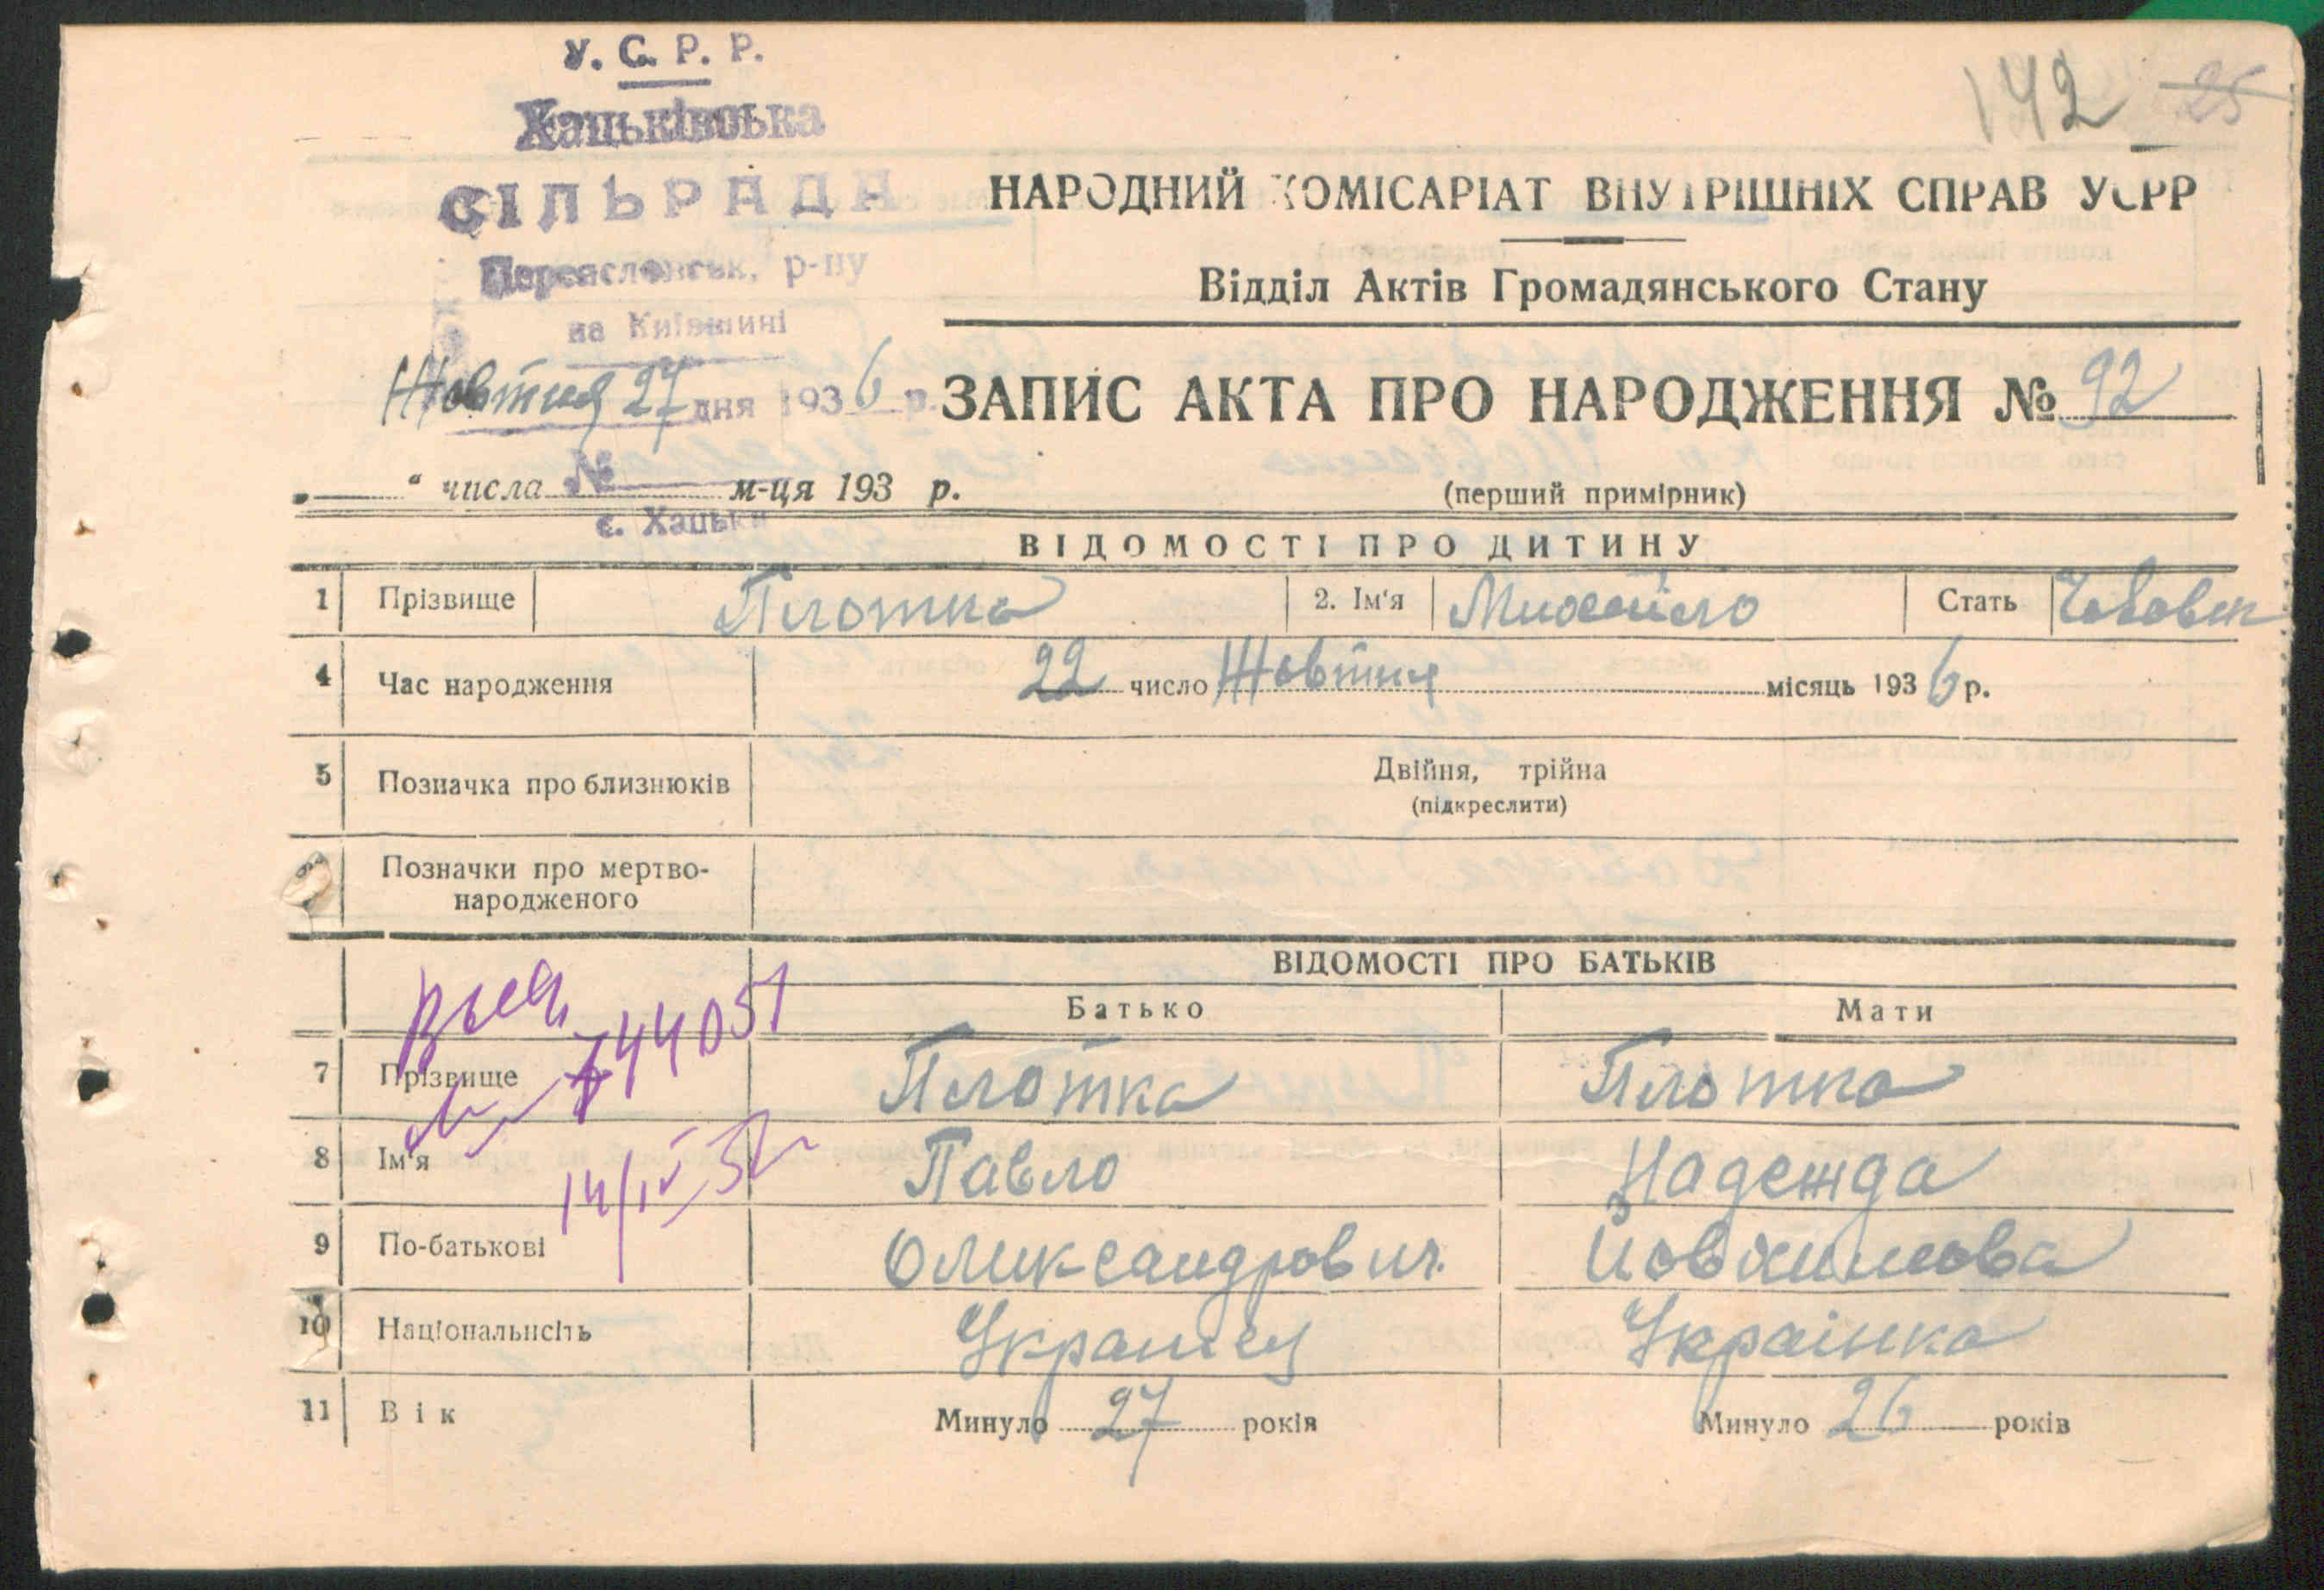 У. С. Р. Р.
Хацьківська
СІЛЬРАДА
Переяславськ, р-ну
на Київщині
Жовтня 27 дня 1936 р.
№
с. Хацьки
142 25
НАРОДНИЙ КОМІСАРІАТ ВНУТРІШНІХ СПРАВ УСРР
Відділ Актів Громадянського Стану
ЗАПИС АКТА ПРО НАРОДЖЕННЯ № 92
„ “ числа м-ця 193 р.
(перший примірник)
ВІДОМОСТІ ПРО ДИТИНУ
1 Прізвище Плотка 2. Ім'я Михайло Стать Чоловіч
4 Час народження 22 число Жовтня місяць 1936 р.
5 Позначка про близнюків Двійня, трійна
(підкреслити)
Позначки про мертво-
народженого
ВІДОМОСТІ ПРО БАТЬКІВ
Батько Мати
7 Прізвище Плотка Плотка
8 Ім'я Павло Надежда
9 По-батькові Олександрович. Йовхимова
10 Національність Українец Українка
11 Вік Минуло 27 років Минуло 26 років
744051